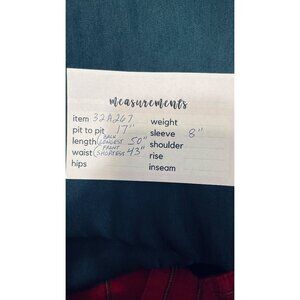 measurements
item 32A267 weight
pit to pit 17" sleeve 8"
length (BACK LONGEST 50" shoulder
waist (FRONT SHORTEST 43" rise
hips inseam